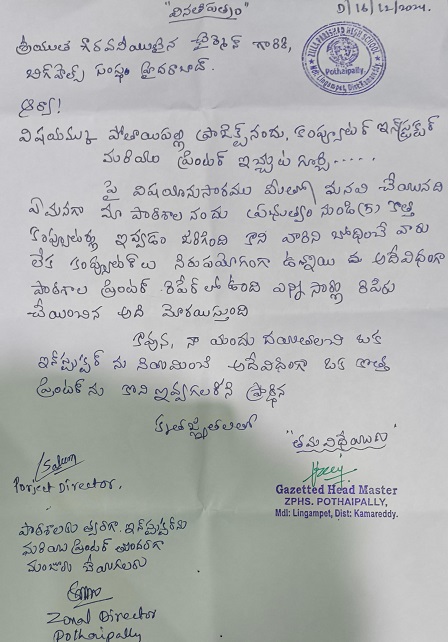 "వినతిపత్రం"
D/16/12/2024.
ZILLA PARISHAD HIGH SCHOOL
Pothaipally
Mdl: Lingampet, Dist: Kamareddy
శ్రీయుత గౌరవనీయులైన చైర్మెన్ గారికి,
హైదరాబాద్.
ఆర్యా!
విషయము పోతాయిపల్లి ప్రాజెక్ట్ నందు, కంప్యూటర్ ఇన్‌స్ట్రక్టర్
మరియు ప్రింటర్ ఇచ్చుట గూర్చి.....
పై విషయానుసారముగా మీతో మనవి చేయునది
ఏమనగా మా పాఠశాల నందు ప్రభుత్వం నుండి (5) కొత్త
కంప్యూటర్లు ఇవ్వడం జరిగింది కాని వాటిని బోధించే వారు
లేక కంప్యూటర్‌లు నిరుపయోగంగా ఉన్నాయి అదేవిధంగా
పాఠశాల ప్రింటర్ రిపేర్ లో ఉంది ఎన్ని సార్లు రిపేరు
చేయించిన అది మోరాయిస్తుంది
కావున, నా యందు దయతలచి ఒక
ఇన్‌స్ట్రక్టర్ ను నియమించి అదేవిధంగా ఒక కొత్త
ప్రింటర్ ను కొని ఇవ్వగలరని ప్రార్థన
కృతజ్ఞతలతో
"తమ విధేయులు"
Porject Director.
Gazetted Head Master
ZPHS. POTHAIPALLY,
Mdl: Lingampet, Dist: Kamareddy.
పాఠశాలకు త్వరగా ఇన్‌స్ట్రక్టర్‌ను
మరియు ప్రింటర్ తొందరగా
మంజూరు చేయగలరు
Zonal Director
Pothaipally